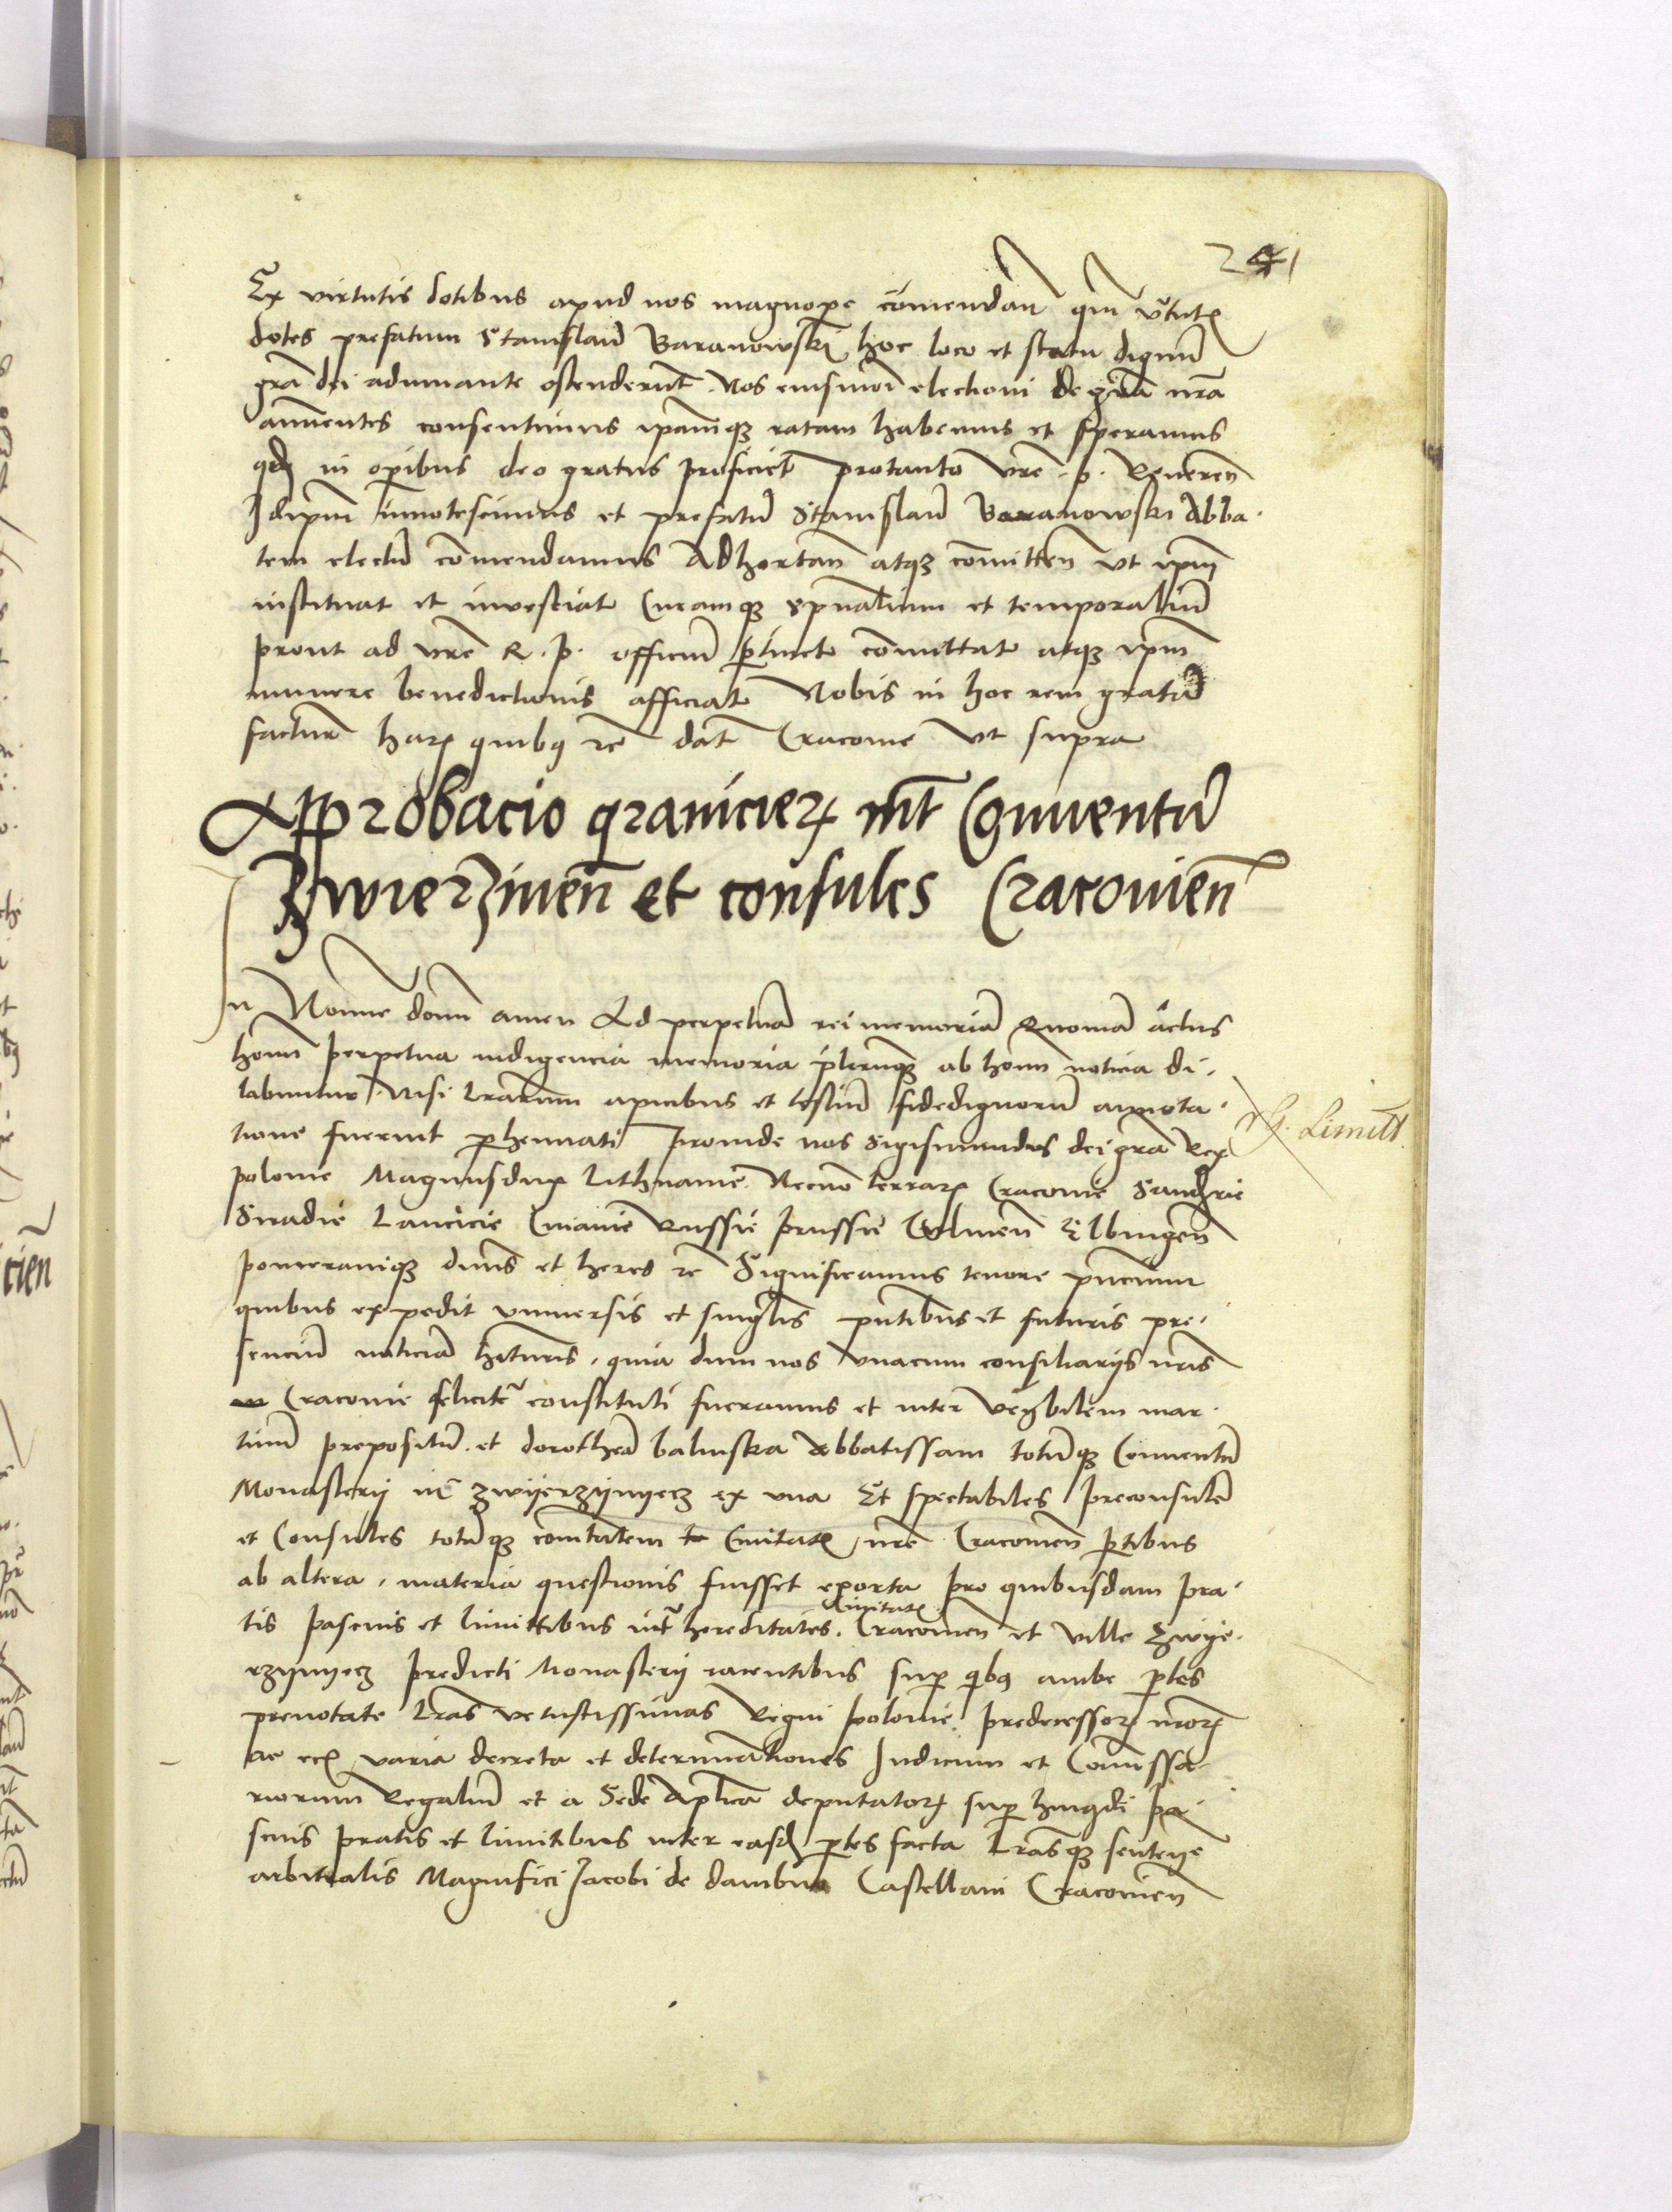 241
Ex virtutis dotibus apud nos magnope comendan qm vtutu
dotes prefatum Stanislau Baranowski hoc loco et statu dignu
gra dei adiuuante ostenderut. Nos eiusmoi electioni de gra nra
annuentes consentimus ipamq ratam habemus et speramus
qd in opibus deo gratus proficiet protanto vre. p. Reueren
Idipm innotescimus et prefatu Stanislau Baranowski Abba
tem electu comendamus Adhortan atq comitten vt ipm
instituat et inuestiat Curamq spualium et temporaliu
prout ad vre R. p. officiu ptinet comittat atq ipm
munere benedictionis afficiat Nobis in hoc rem gratu
factur har quibq rc dat Cracouie vt supra
Approbacio granicier int Conuentu
Zwierzinen et consules Cracouien
In Nomine domi amen Ad perpetua rei memoria Quonia actus
homi perpetua indigencia memoria plerunq ab homi noticia di
labuntur Nisi lrarum apicibus et testiu fidedignoru annota
tione fuerint phennati Proinde nos Sigismundus dei gra Rex
polonie Magnusdux Lithuanie Necno terrar Cracouie Sandrie
Siradie Lancicie Cuiauie Russie prussie Culmen Elbingen
pomeranieq dns et heres rc Significamus tenore pncium
quibus expedit vniuersis et singlis pntibus et futuris pre
senciu noticia hituris. quia dum nos vnacum consiliarijs nris
Cracouie felicit constituti fueramus et inter veneblem mar
tinu prepositu. et dorothea balinska Abbatissam totuq Conuentu
Monasterij in Zwyerzynyecz ex vna Et spectabiles preconsule
et Consules totaq comtatem Ciuitat nre Cracouien ptibus
ab altera. materia questionis fuisset exorta pro quibusdam pra
tis pascuis et limittibus int hereditates. Ciuitat Cracouien et ville Zwye
rzynyecz predicti Monasterij iacentibus sup qibq ambe ptes
prenotate lras vetustissimas Regni polonie predecessor nror
ac eci varia decreta et determinationes Iudicum et Comissa
riorum Regaliu et a Sede Aplica deputator sup huiqdi pa
scuis pratis et limitibus inter easd ptes facta lrasq sentencie
arbitralis Magnifici Iacobi de dambno Castellani Cracouien
G. Limitt.